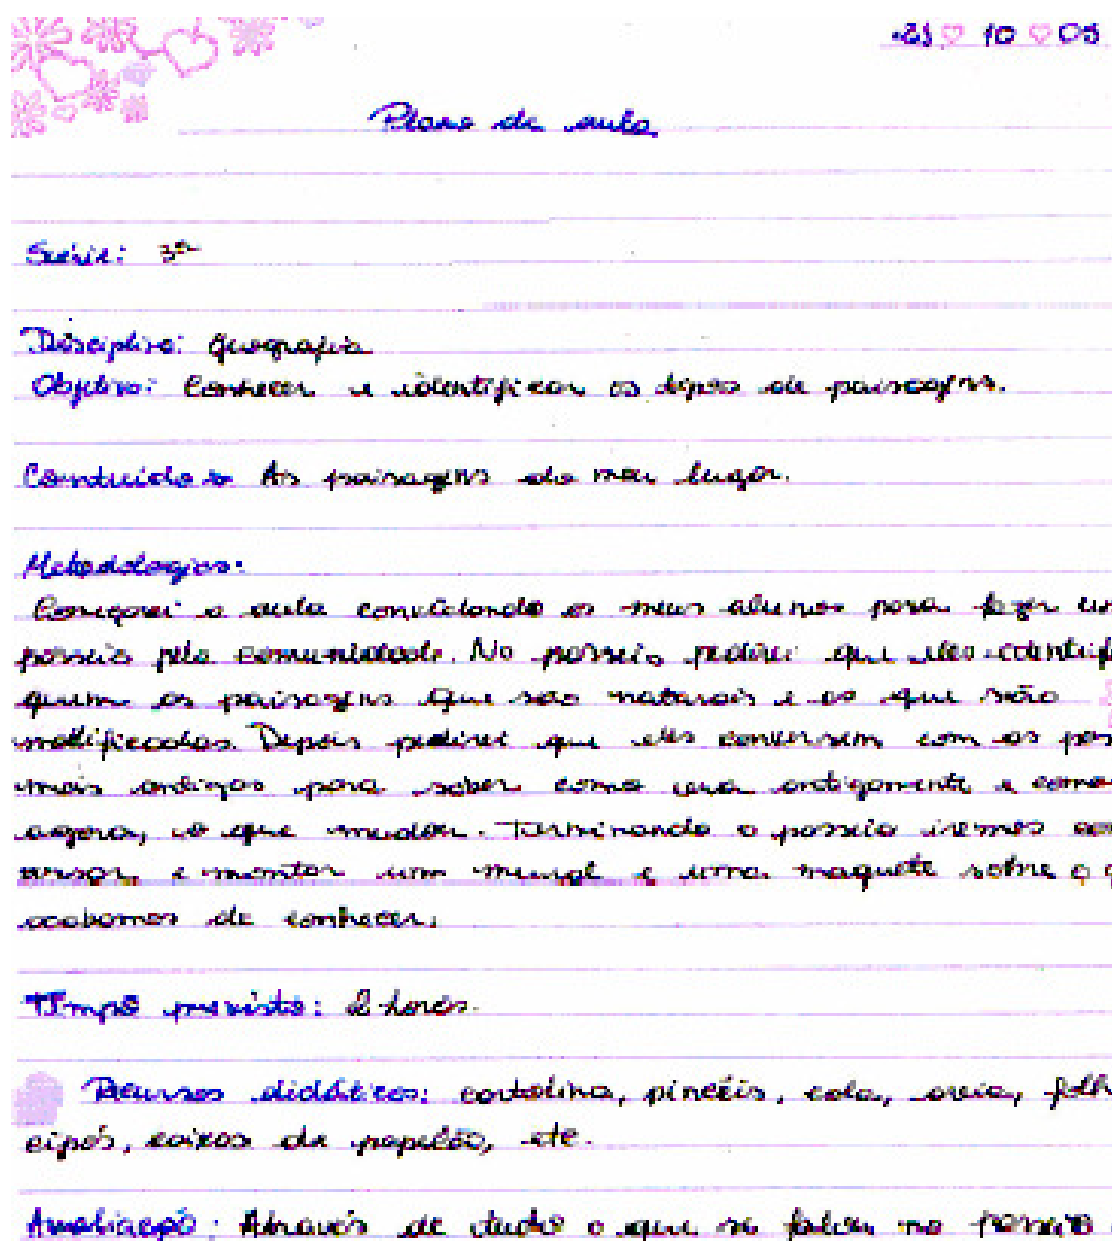 10 05
Plano de aula
Série: 3ª
Disciplina: Geografia
Objetivo: Conhecer e identificar os tipos de paisagens.
Conteúdo As paisagens do meu lugar.
Metodologia:
Começarei a aula convidando os meus alunos para fazer um
passeio pela comunidade. No passeio pedirei que eles identifi
quem as paisagens que são naturais e as que são
modificadas. Depois pedirei que eles conversem com as pes
mais antigas para saber como era antigamente e como
agora, e o que mudou. Terminando o passeio iremos con
versar e montar um mural e uma maquete sobre o q
acabamos de conhecer.
Tempo previsto: 2 horas.
Recursos didáticos: cartolina, pincéis, cola, areia, folh
cipós, caixas de papelão, etc.
Avaliação: Através de tudo o que se falou no passeio